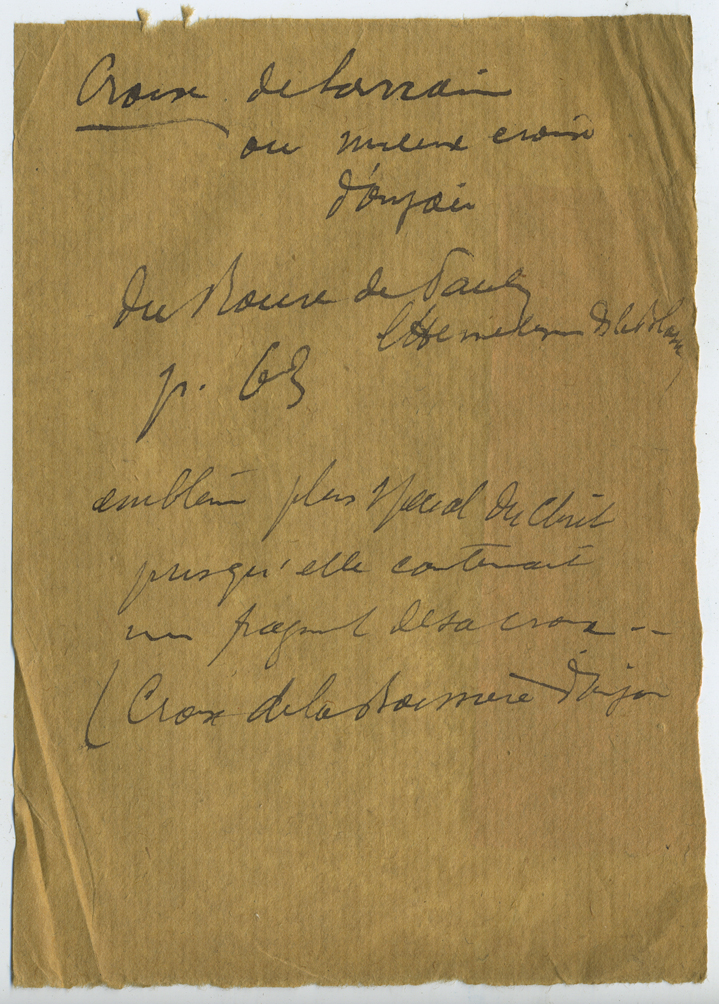 Croix de Lorrain
ou mieux croix
d'anjou
du Roure de Paulin
l'Hermétisme dsle Blason
p. 63
emblème plus spécial du Christ
puisqu'elle contenait
un fragment desa croix --
(Croix de la Boissière d'Anjou